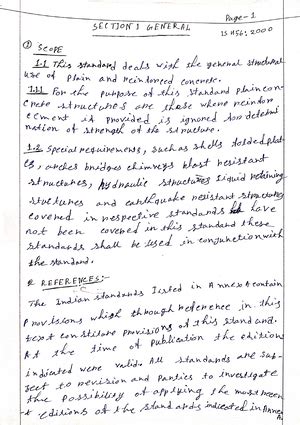 Page-1
SECTION 1 GENERAL
IS 456:2000
① SCOPE
1.1 This standard deals with the general structural
use of plain and reinforced concrete.
1.1.1 For the purpose of this standard plain con-
crete structures are those where reinfor
cement is provided is ignored for determi
nation of strength of the structure.
1.2 Special requirements, such as shells folded plat
es, arches bridges chimneys blast resistant
structures, hydraulic structures liquid retaining
structures and earthquake resistant structures
covered in respective standards have
not been covered in this standard these
standards shall be used in conjunction with
the standard.
REFERENCES:-
The Indian standards listed in Annex A contain
provisions which through reference in this
text constitute provisions of this standard.
At the time of publication the editions
indicated were valid. All standards are sub-
ject to revision and parties to investigate
the possibility of applying the most recen
t editions of the standards indicated in Annex A